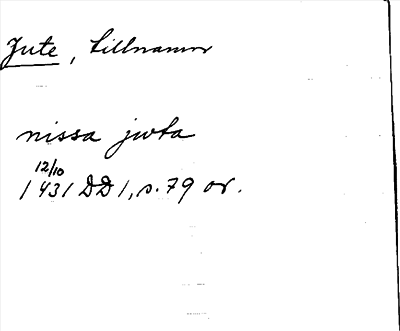 Jute, tillnamn
nissa jwta
12/10
1431 DD 1, s. 79 or.